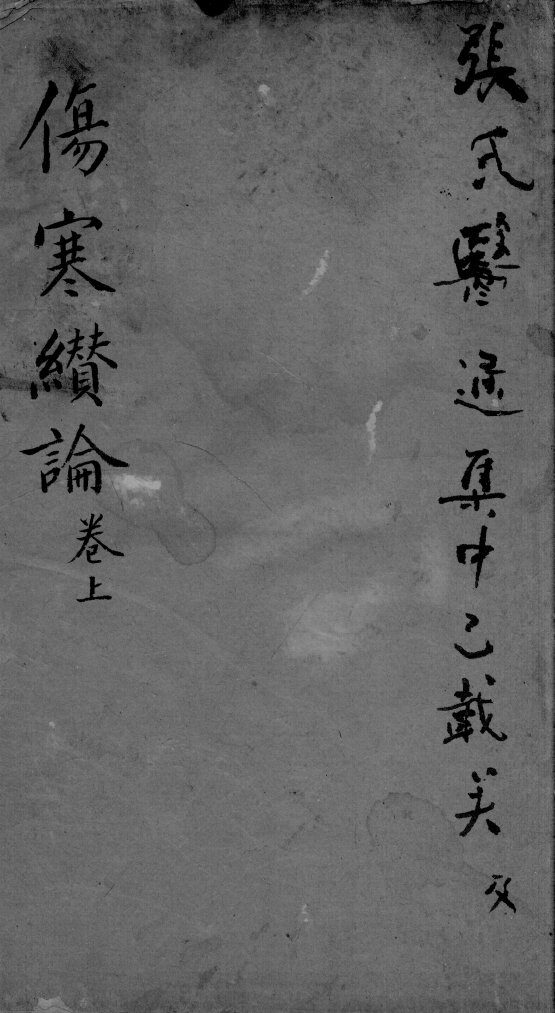 張氏醫通集中已載矣
傷寒纘論卷上